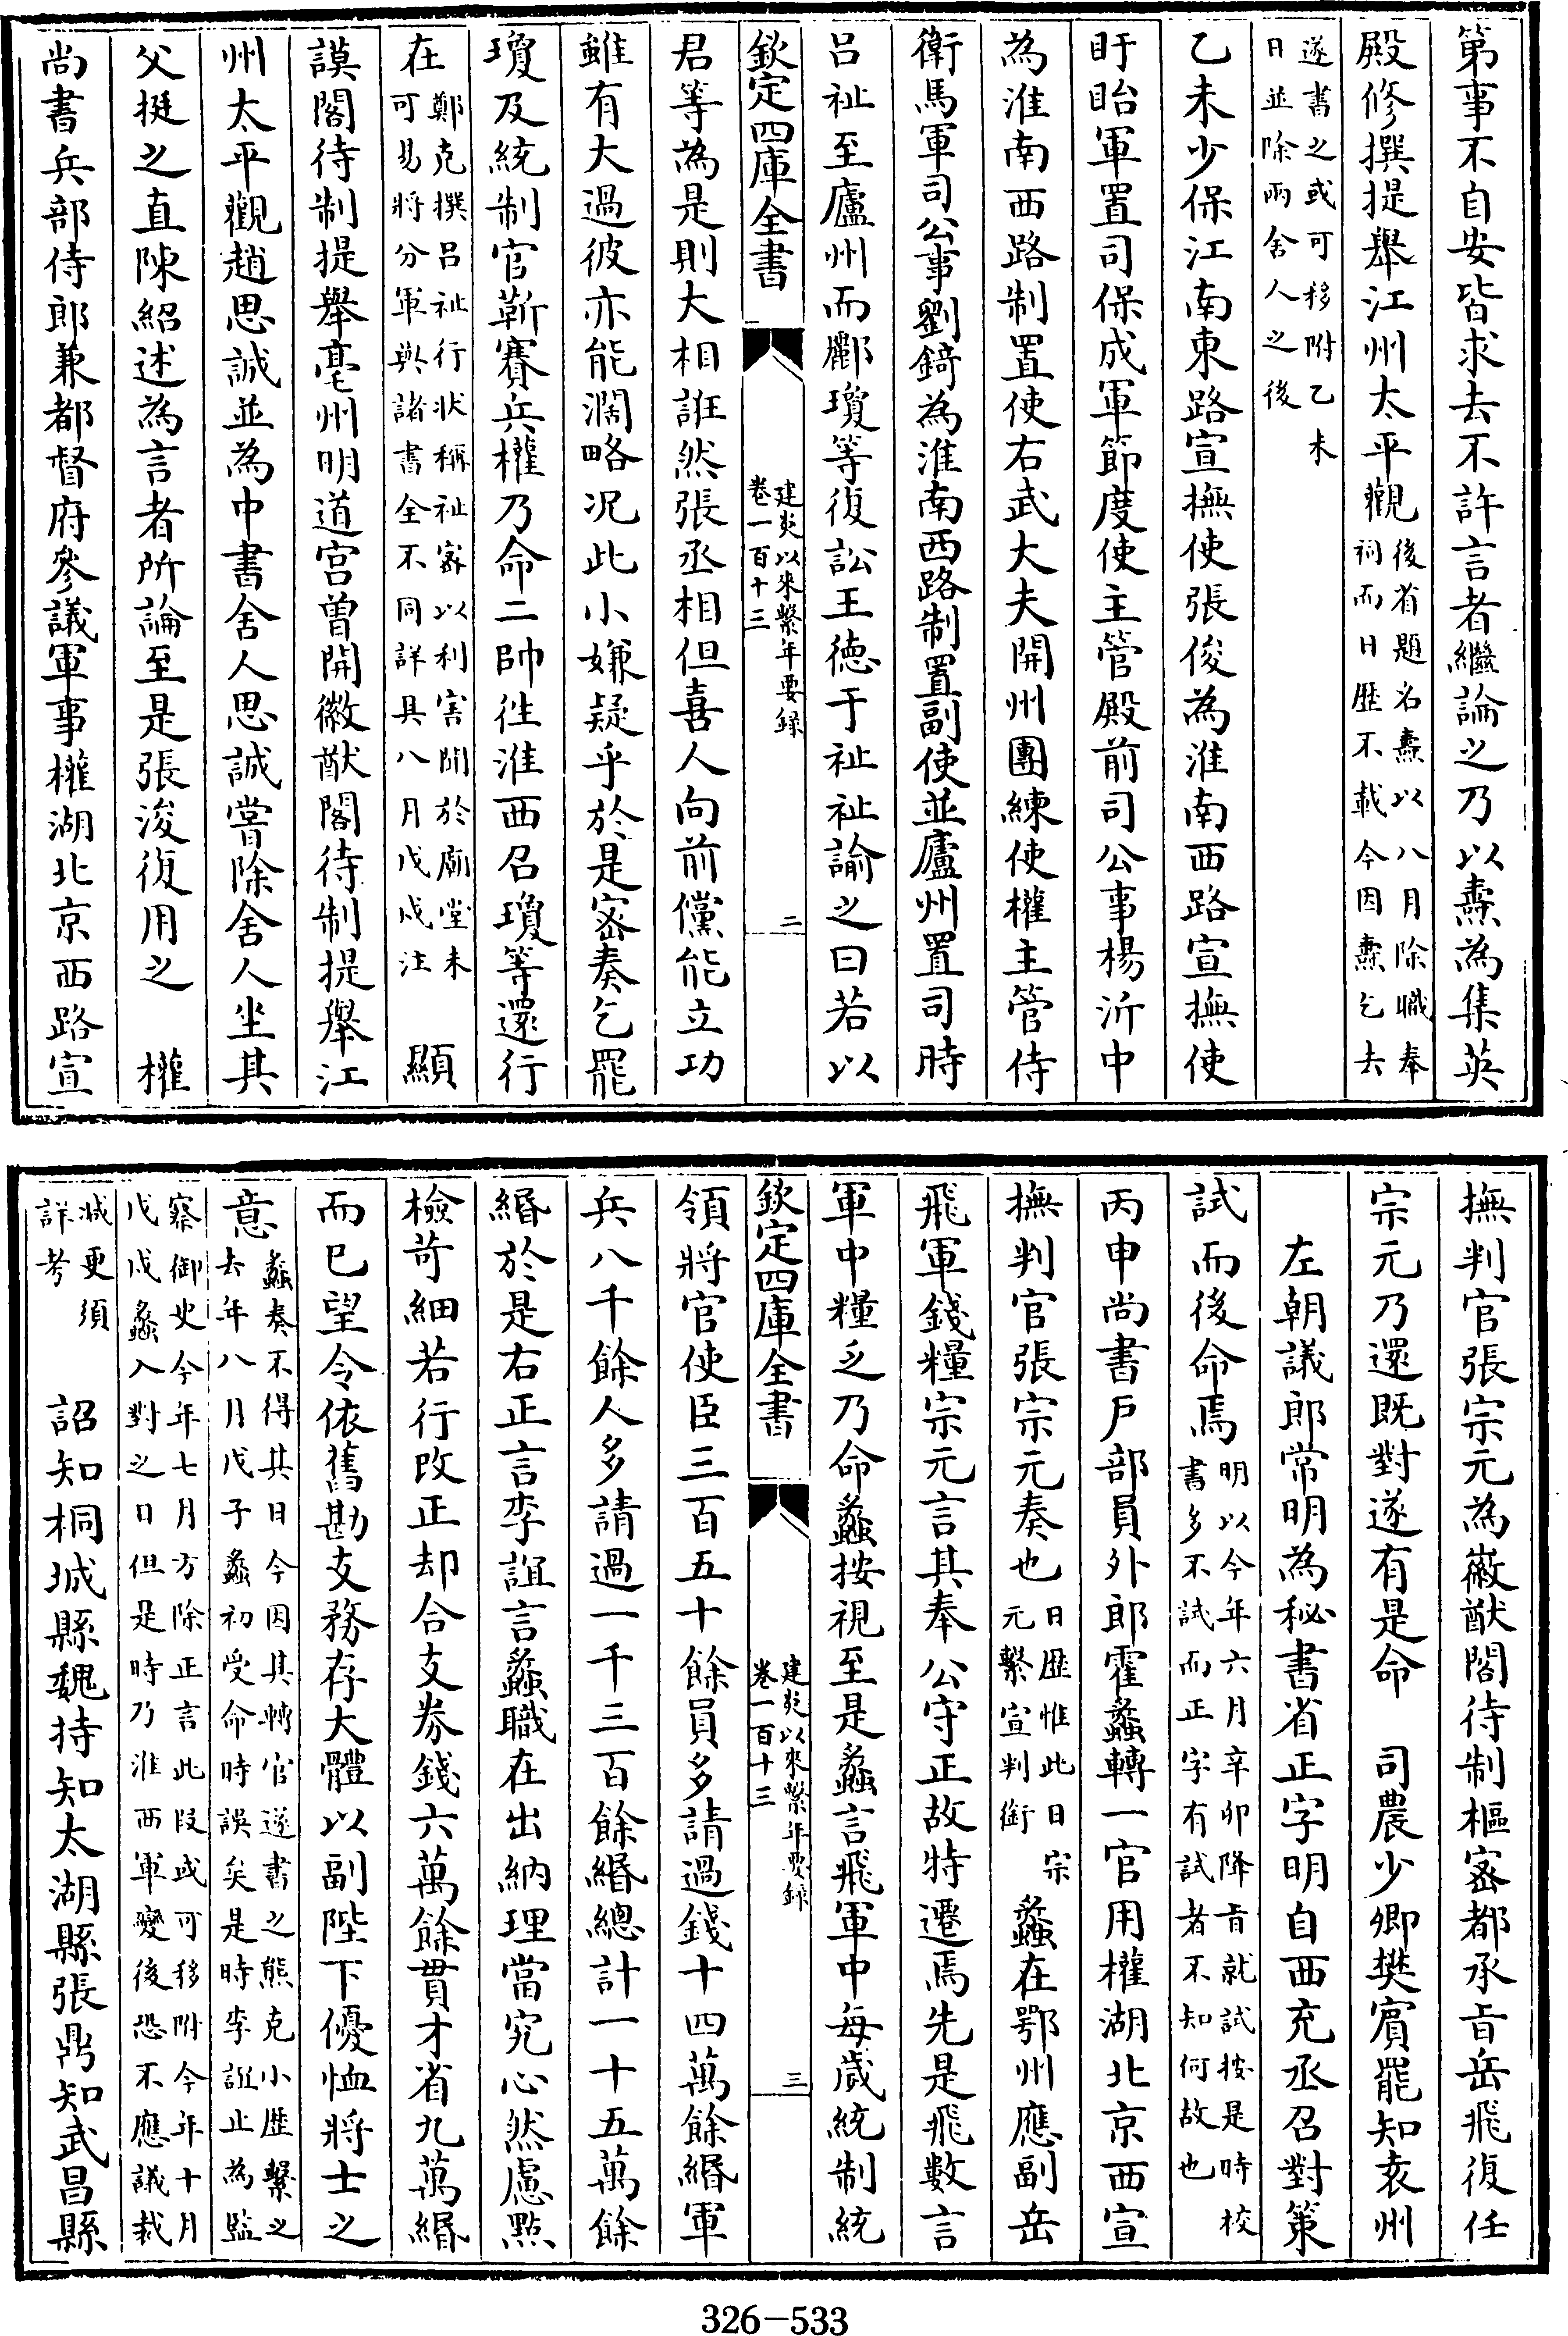 第事不自安皆求去不許言者繼論之乃以燾為集英
殿修撰提舉江州太平觀後省題名燾以八月除職奉祠而日歷不載今因燾乞去
遂書之或可移附乙未日並除兩舍人之後
乙未少保江南東路宣撫使張俊為淮南西路宣撫使
盱眙軍置司保成軍節度使主管殿前司公事楊沂中
為淮南西路制置使右武大夫開州團練使權主管侍
衛馬軍司公事劉錡為淮南西路制置副使並廬州置司時
呂祉至廬州而酈瓊等復訟王德于祉祉諭之曰若以
欽定四庫全書 建炎以來繫年要錄 卷一百十三 二
君等為是則大相誑然張丞相但喜人向前儻能立功
雖有大過彼亦能濶略况此小嫌疑乎於是密奏乞罷
瓊及統制官靳賽兵權乃命二帥往淮西召瓊等還行
在鄭克撰呂祉行状稱祉密以利害聞於廟堂未可易將分軍與諸書全不同詳具八月戊戌注 顯
謨閣待制提舉亳州明道宫曾開徽猷閣待制提舉江
州太平觀趙思誠並為中書舍人思誠嘗除舍人坐其
父挺之直陳紹述為言者所論至是張浚復用之 權
尚書兵部侍郎兼都督府參議軍事權湖北京西路宣
撫判官張宗元為徽猷閣待制樞密都承旨岳飛復任
宗元乃還既對遂有是命 司農少卿樊賓罷知袁州
左朝議郎常明為秘書省正字明自西充丞召對策
試而後命焉明以今年六月辛卯降旨就試按是時校書多不試而正字有試者不知何故也
丙申尚書戶部員外郎霍蠡轉一官用權湖北京西宣
撫判官張宗元奏也日歷惟此日宗元繫宣判銜 蠡在鄂州應副岳
飛軍錢糧宗元言其奉公守正故特遷焉先是飛數言
軍中糧乏乃命蠡按視至是蠡言飛軍中每歲統制統
欽定四庫全書 建炎以來繫年要錄 卷一百十三 三
領將官使臣三百五十餘員多請過錢十四萬餘緡軍
兵八千餘人多請過一千三百餘緡總計一十五萬餘
緡於是右正言李誼言蠡職在出納理當究心然慮點
檢苛細若行改正却合支券錢六萬餘貫才省九萬緡
而已望令依舊勘支務存大體以副陛下優恤將士之
意蠡奏不得其日今因其轉官遂書之熊克小歷繫之去年八月戊子蠡初受命時誤矣是時李誼止為監
察御史今年七月方除正言此段或可移附今年十月戊戌蠡入對之日但是時乃淮西軍變後恐不應議裁
減更須詳考 詔知桐城縣魏持知太湖縣張鼎知武昌縣
326-533